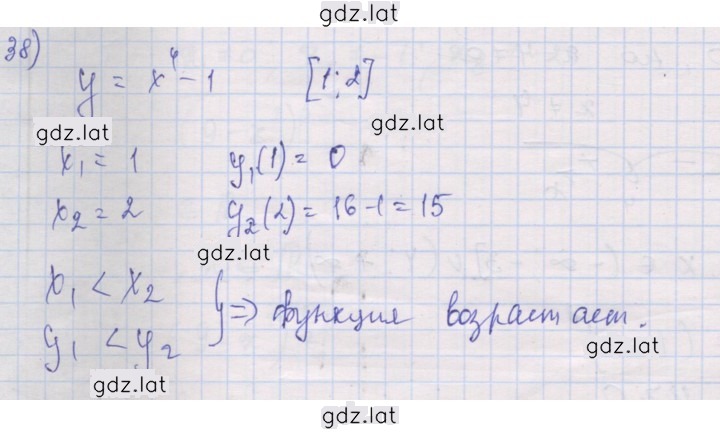 gdz.lat
38)
y = x⁴ - 1 [1; 2]
gdz.lat gdz.lat
x₁ = 1 y₁(1) = 0
x₂ = 2 y₂(2) = 16 - 1 = 15
gdz.lat
x₁ < x₂
y₁ < y₂ } => функция возрастает.
gdz.lat
gdz.lat
gdz.lat